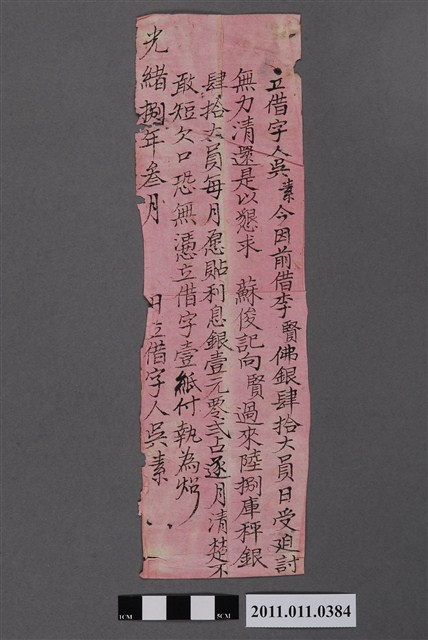 立借字人吳素今因前借李賢佛銀肆拾大員日受廹討
無力清還是以懇求　蘇俊記向賢過來陸捌庫秤銀
肆拾大員每月愿貼利息銀壹元零弍占逐月清楚不
敢短欠口恐無憑立借字壹紙付執為炤
光緒捌年叁月　日立借字人吳素
1CM
5CM
2011.011.0384